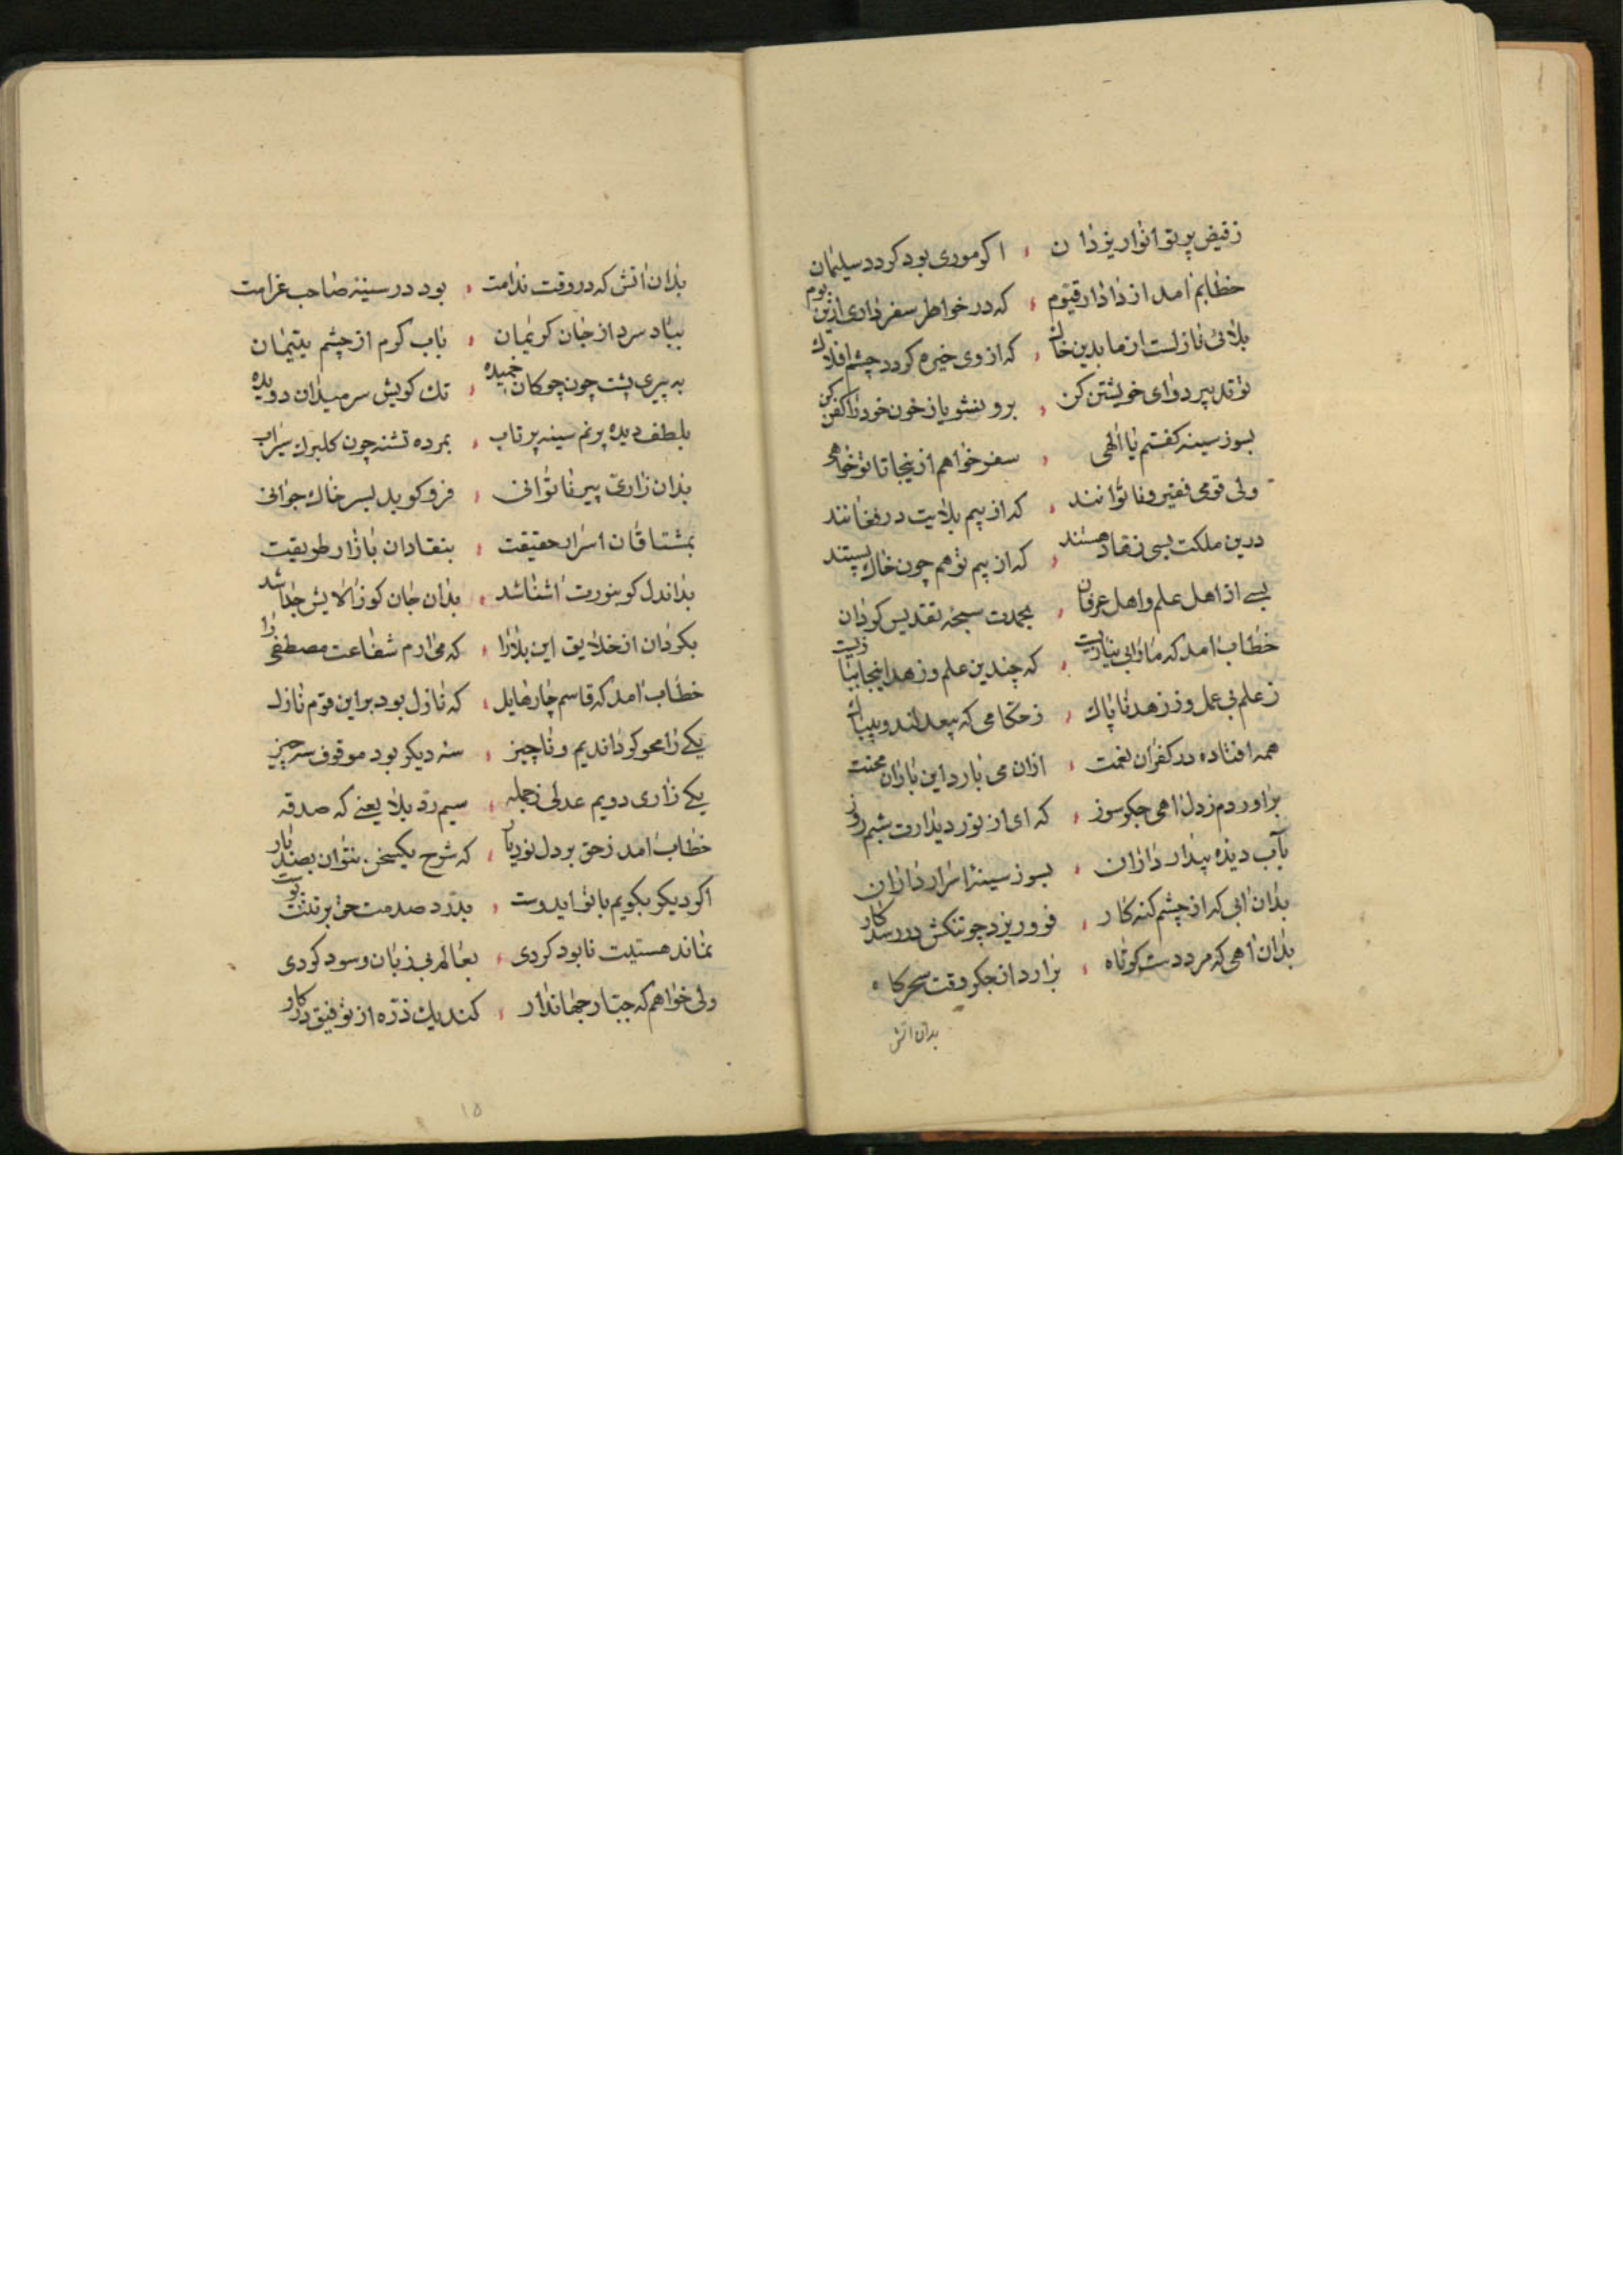 زفیض پرتو انوار یزدان ، اکر موری بود کردد سلیمان
خطابم امد از دادار قیوم ، که در خواطر سفر داری ازین بوم
بلائی نازلست از ما بدین خاک ، که از وی خیره کردد چشم افلاک
تو تدبیر دوای خویشتن کن ، برو بنشو یاز خون خود را کفن کن
بسوز سینه کفتم یا الهی ، سفر خواهم ازینجا تا تو خواهی
ولی قومی فقیر و ناتوانند ، که از بیم بلایت در فغانند
درین ملکت بسی زهاد هستند ، که از بیم تو هم چون خاک پستند
بسے از اهل علم و اهل عرفان ، بحمدت سبحه تقدیس کردان
خطاب امد که مارا بی نیازیست ، که چندین علم و زهد اینجا ببازیست
ز علم بی عمل وز زهد ناپاک ، ز حکامی که بیعدلند و بیباک
همه افتاده در کفران نعمت ، ازان می بارد این باران محنت
براوردم ز دل اهی جکر سوز ، که ای از نور دیدارت شبم روز
بآب دیده بیدار داران ، بسوز سینۀ اسرار داران
بدان ابی که از چشم کنه کار ، فرو ریزد چو تنکش در رسد کار
بدان اهی که مرد دست کوتاه ، برارد از جکر وقت سحرکاه
بدان اتش
بدان اتش که در وقت ندامت ، بود در سینۀ صاحب غرامت
بباد سرد از جان کریمان ، باب کرم از چشم یتیمان
به پیری پشت چون چوکان خمیده ، تک کویش سر میدان دویده
بلطف دیده پرنم سینه پرتاب ، بمرده تشنه چون کلبرک سیراب
بدان زاری پیر ناتوانی ، فرو کوبد بسر خاک جوانی
بمشتاقان اسرار حقیقت ، بنقادان بازار طریقت
بداندل کو بنورت اشنا شد ، بدان جان کو ز الایش جدا شد
بکردان از خلایق این بلا را ، که می ارم شفاعت مصطفی را
خطاب امد که قاسم چار هایل ، که نازل بود براین قوم نازل
یکے را محو کرداندیم و ناچیز ، سه دیکر بود موقوف سه چیز
یکے زاری دویم عدلی ز جمله ، سیم رد بلا یعنے که صدقه
خطاب امد ز حق بر دل نور بار ، که شرح یکسخن نتوان بصد بار
اکر دیکر بکویم با تو ایدوست ، بدرد صدمت حق بر تنت پوست
نماند هستیت نابود کردی ، بعالم بی زیان و سود کردی
ولی خواهم که جبار جهاندار ، کند یک ذره از توفیق در کار
۱۵